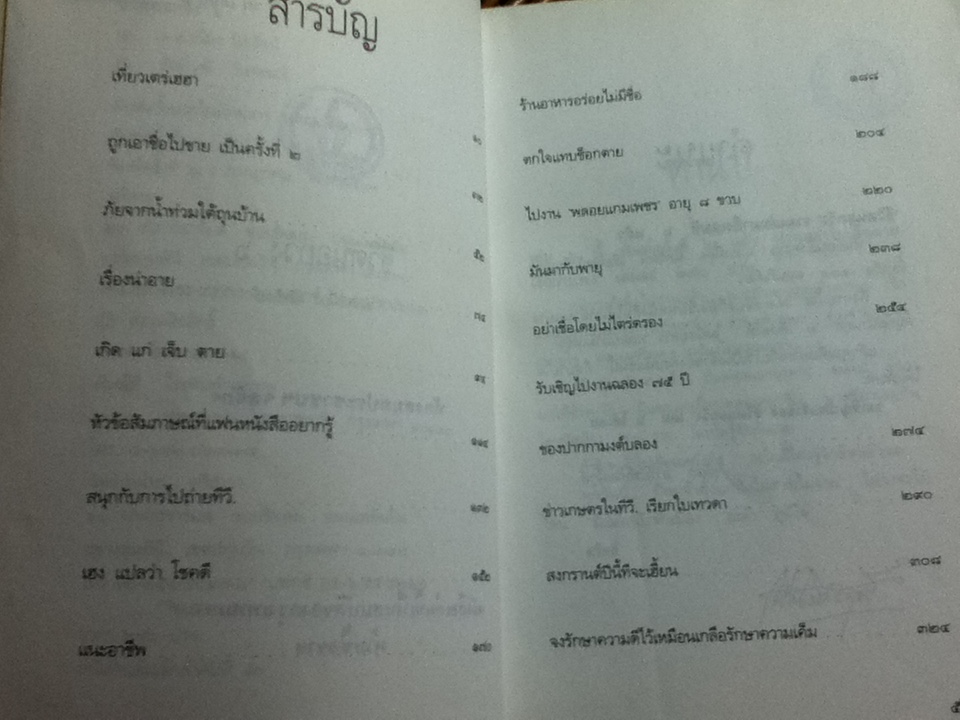 สารบัญ
เที่ยวเตร่เฮฮา
ถูกเอาชื่อไปขาย เป็นครั้งที่ ๒
ภัยจากน้ำท่วมใต้ถุนบ้าน
๕๒
เรื่องน่าอาย
๗๔
เกิด แก่ เจ็บ ตาย
หัวข้อสัมภาษณ์ที่แฟนหนังสืออยากรู้
๑๑๔
สนุกกับการไปถ่ายทีวี.
๑๓๒
เฮง แปลว่า โชคดี
๑๕๒
แนะอาชีพ
๑๗๐
ร้านอาหารอร่อยไม่มีชื่อ ๑๘๘
ตกใจแทบช็อกตาย ๒๐๔
ไปงาน 'พลอยแกมเพชร' อายุ ๘ ขวบ ๒๒๐
มันมากับพายุ ๒๓๘
อย่าเชื่อโดยไม่ไตร่ตรอง ๒๕๔
รับเชิญไปงานฉลอง ๗๕ ปี
ของปากกามงต์บลอง ๒๗๔
ข่าวเกษตรในทีวี. เรียกใบเทวดา ๒๙๐
สงกรานต์ปีนี้ที่จะเฮี้ยน ๓๐๘
จงรักษาความดีไว้เหมือนเกลือรักษาความเค็ม ๓๒๔